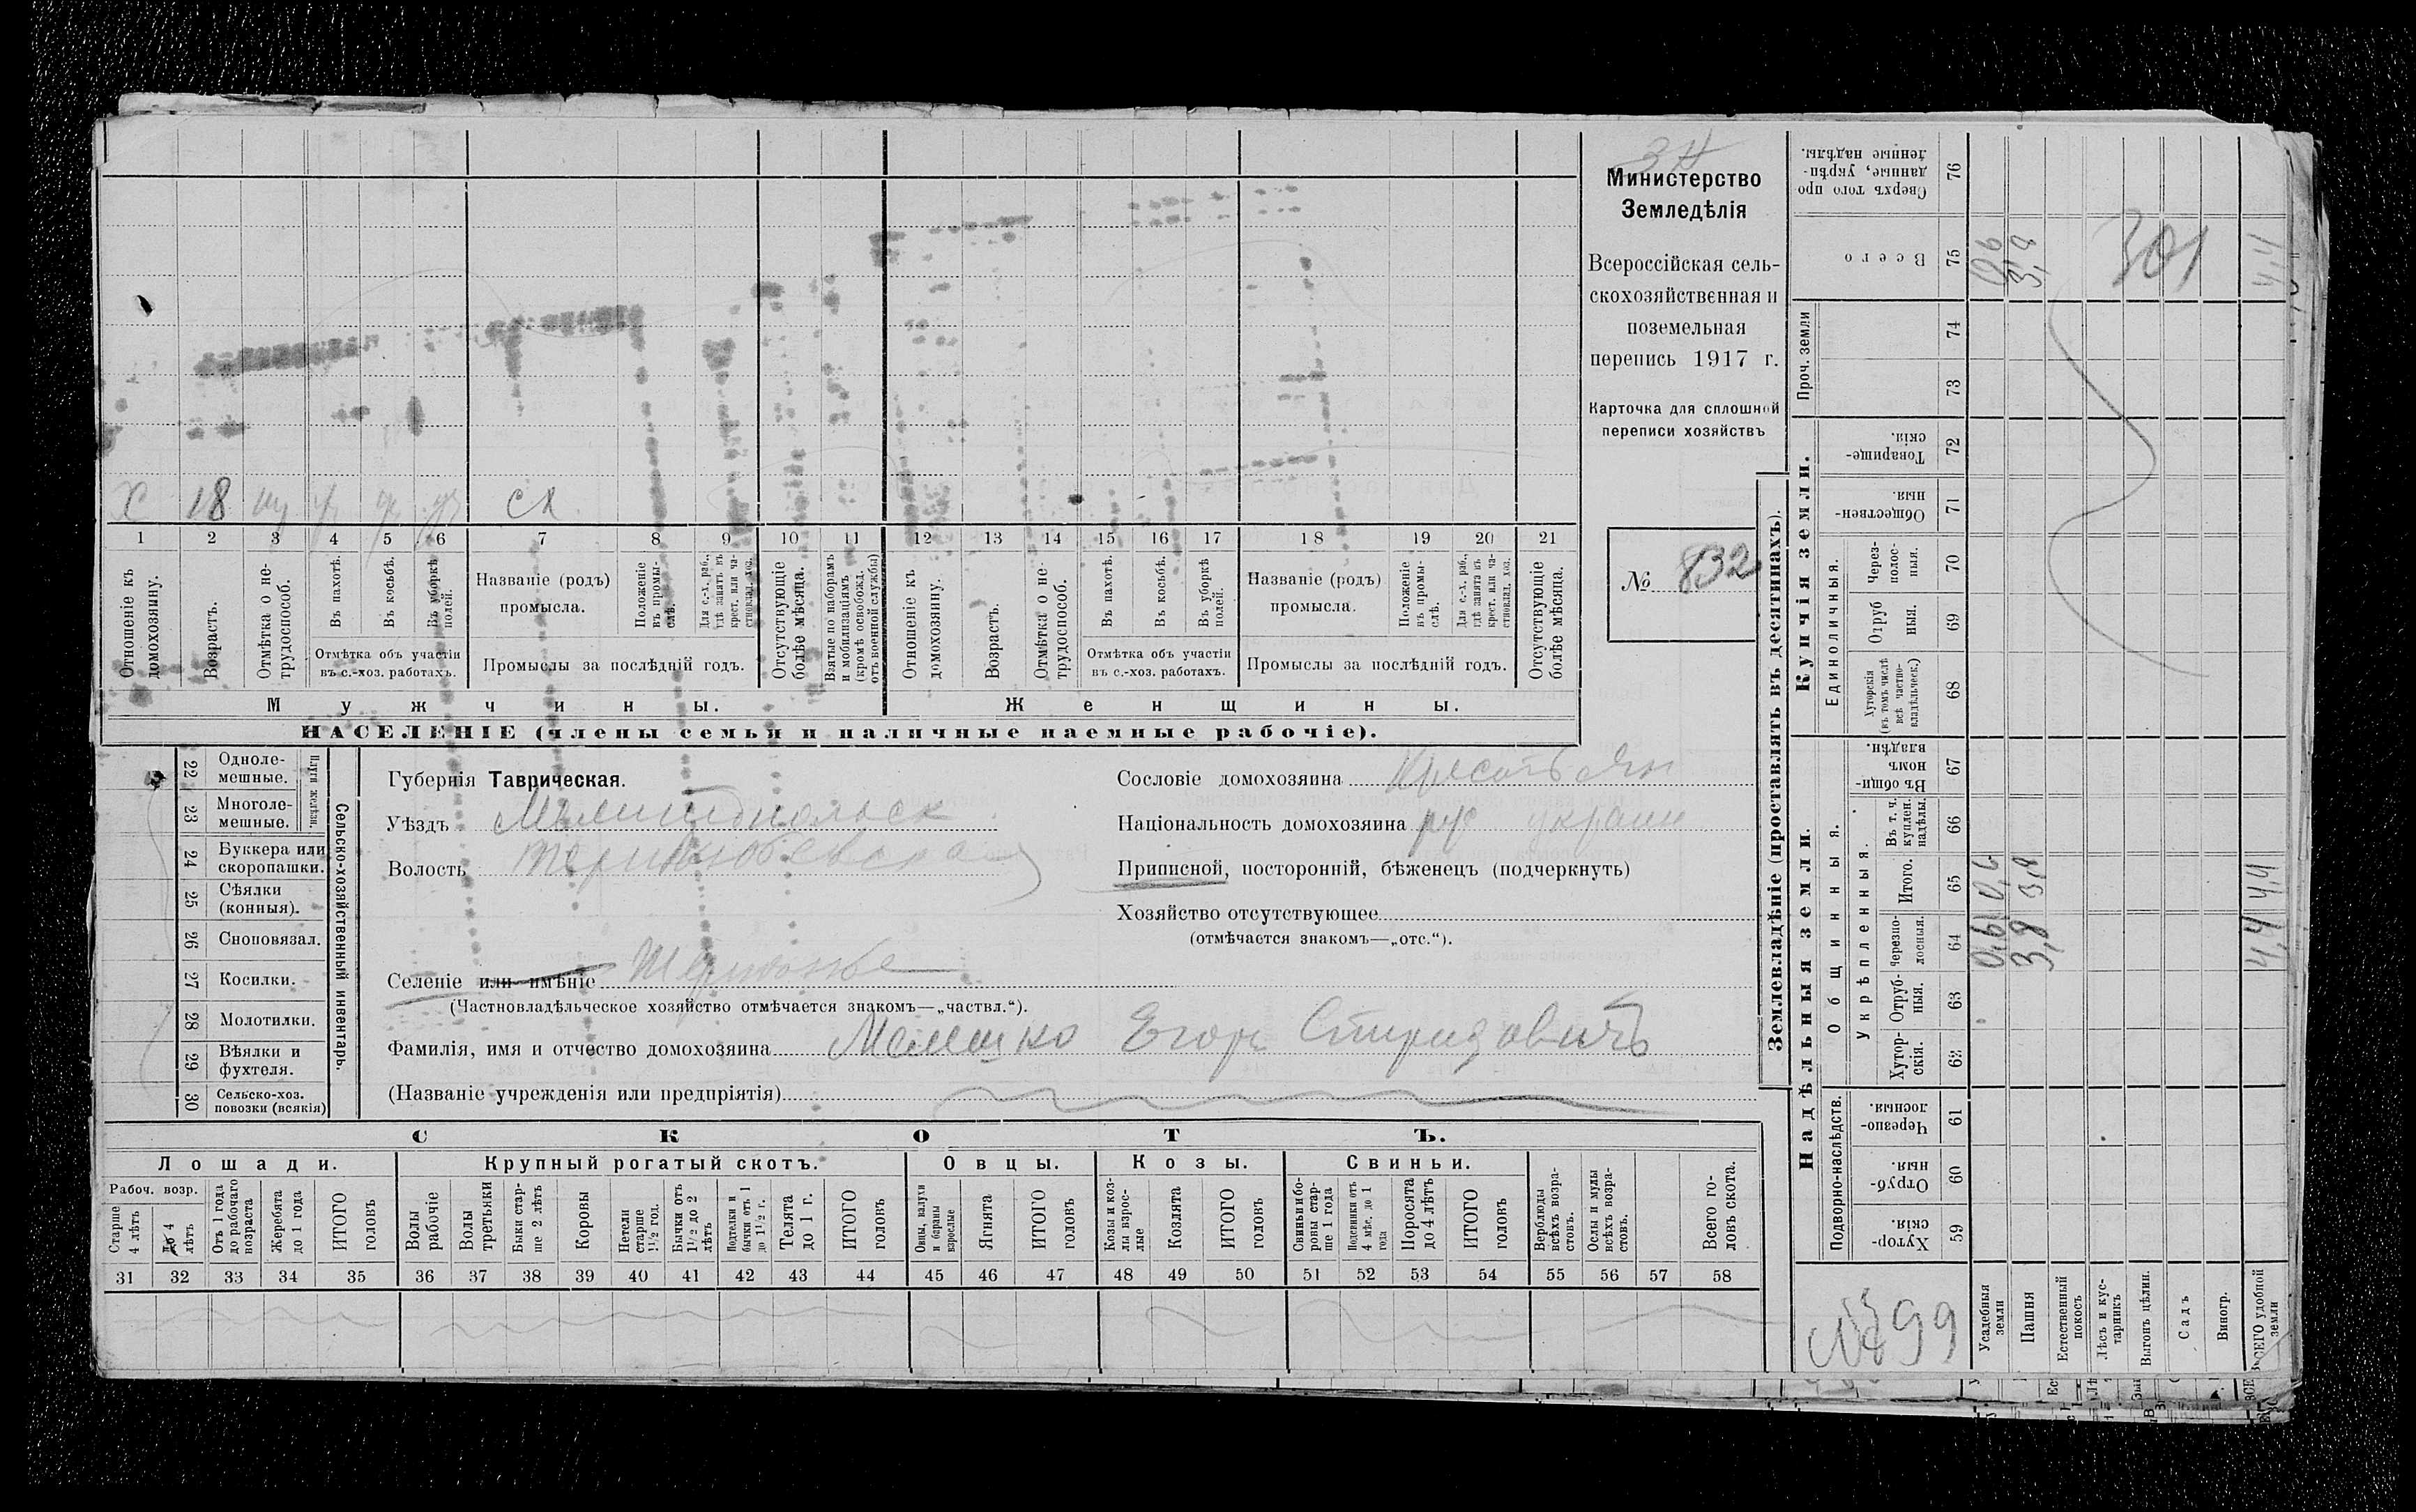 3 н
Министерство
Земледѣлія
Всероссійская сель-
скохозяйственная и
поземельная
перепись 1917 г.
Карточка для сплошной
переписи хозяйствъ
№ 832
Х 18 сх
1 2 3 4 5 6 7 8 9 10 11 12 13 14 15 16 17 18 19 20 21
Отношеніе къ домохозяину.
Возрастъ.
Отмѣтка о не-трудоспособ.
Въ пахотѣ.
Въ косьбѣ.
Въ уборкѣ полей.
Отмѣтка объ участіи
въ с.-хоз. работахъ.
Названіе (родъ)
промысла.
Положеніе въ промы-слѣ.
Для с.-х. раб., гдѣ занятъ въ крест. или ча-стновлад. хоз.
Промыслы за послѣдній годъ.
Отсутствующіе болѣе мѣсяца.
Взятые по наборамъ и мобилизаціямъ (кромѣ освобожд. отъ военной службы)
Отношеніе къ домохозяину.
Возрастъ.
Отмѣтка о не-трудоспособ.
Въ пахотѣ.
Въ косьбѣ.
Въ уборкѣ полей.
Отмѣтка объ участіи
въ с.-хоз. работахъ.
Названіе (родъ)
промысла.
Положеніе въ промы-слѣ.
Для с.-х. раб., гдѣ занята въ крест. или ча-стновлад. хоз.
Промыслы за послѣдній годъ.
Отсутствующіе болѣе мѣсяца.
Мужчины.
Женщины.
НАСЕЛЕНІЕ (члены семьи и наличные наемные рабочіе).
22 Однолемешные.
23 Многолемешные.
Плуги желѣзн.
24 Буккера или скоропашки.
25 Сѣялки (конныя).
26 Сноповязал.
27 Косилки.
28 Молотилки.
29 Вѣялки и фухтеля.
30 Сельско-хоз. повозки (всякія)
Сельско-хозяйственный инвентарь.
Губернія Таврическая.
Уѣздъ Мелитопольск
Волость
Селеніе или имѣніе
(Частновладѣльческое хозяйство отмѣчается знакомъ—„частвл.“).
Фамилія, имя и отчество домохозяина Мелешко Егоръ Спиридовичъ
(Названіе учрежденія или предпріятія)
Сословіе домохозяина
Національность домохозяина рус украин
Приписной, посторонній, бѣженецъ (подчеркнуть)
Хозяйство отсутствующее
(отмѣчается знакомъ—„отс.“).
СКОТЪ.
Лошади.
Крупный рогатый скотъ.
Овцы.
Козы.
Свиньи.
Рабоч. возр.
Старше 4 лѣтъ
До 4 лѣтъ
Отъ 1 года до рабочаго возраста
Жеребята до 1 года
ИТОГО головъ
Волы рабочіе
Волы третьяки
Быки стар-ше 2 лѣтъ
Коровы
Нетели старше 1½ год.
Бычки отъ 1½ до 2 лѣтъ
Подтелки и бычки отъ 1 до 1½ г.
Телята до 1 г.
ИТОГО головъ
Овцы, валухи и бараны взрослые
Ягнята
ИТОГО головъ
Козы и коз-лы взрос-лые
Козлята
ИТОГО головъ
Свиньи и бо-ровы стар-ше 1 года
Подсвинки отъ 4 мѣс. до 1 года
Поросята до 4 лѣтъ
ИТОГО головъ
Верблюды всѣхъ возра-стовъ.
Ослы и мулы всѣхъ возра-стовъ.
Всего го-ловъ скота.
31 32 33 34 35 36 37 38 39 40 41 42 43 44 45 46 47 48 49 50 51 52 53 54 55 56 57 58
Землевладѣніе (проставлять въ десятинахъ).
Сверхъ того про-данные, укрѣп-ленные надѣлы. 76
Всего 75 0,6 3,8 4,4
301
Проч. земли 74 73
Купчія земли.
Товарище-скія. 72
Обществен-ныя. 71
Единоличныя.
Через-полос-ныя. 70
Отруб ныя. 69
Хуторскія (въ томъ числѣ всѣ частно-владѣльческ.) 68
Надѣльныя земли.
Общинныя.
Въ общи-номъ владѣн. 67
Укрѣпленныя.
Въ т. ч. куплен. надѣлы. 66
Итого. 65 0,6 3,8 4,4
Черезпо-лосныя. 64 0,6 3,8 4,4
Отруб-ныя. 63
Хутор-скія. 62
Подворно-наслѣдств.
Черезпо-лосныя. 61
Отруб-ныя. 60
Хутор-скія. 59
Усадебныя земли
Пашня
Естественный покосъ
Лѣсъ и кус-тарникъ
Выгонъ цѣлин.
Садъ
Виногр.
ВСЕГО удобной земли